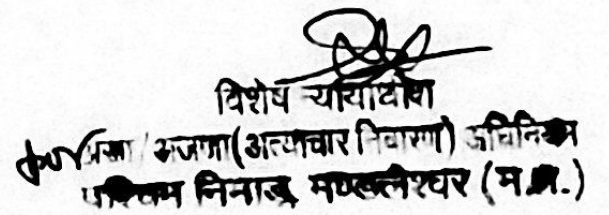 विशेष न्यायाधीश
अजजा (अत्याचार निवारण) अधिनियम
पश्चिम निमाड़ मण्डलेश्वर (म.प्र.)